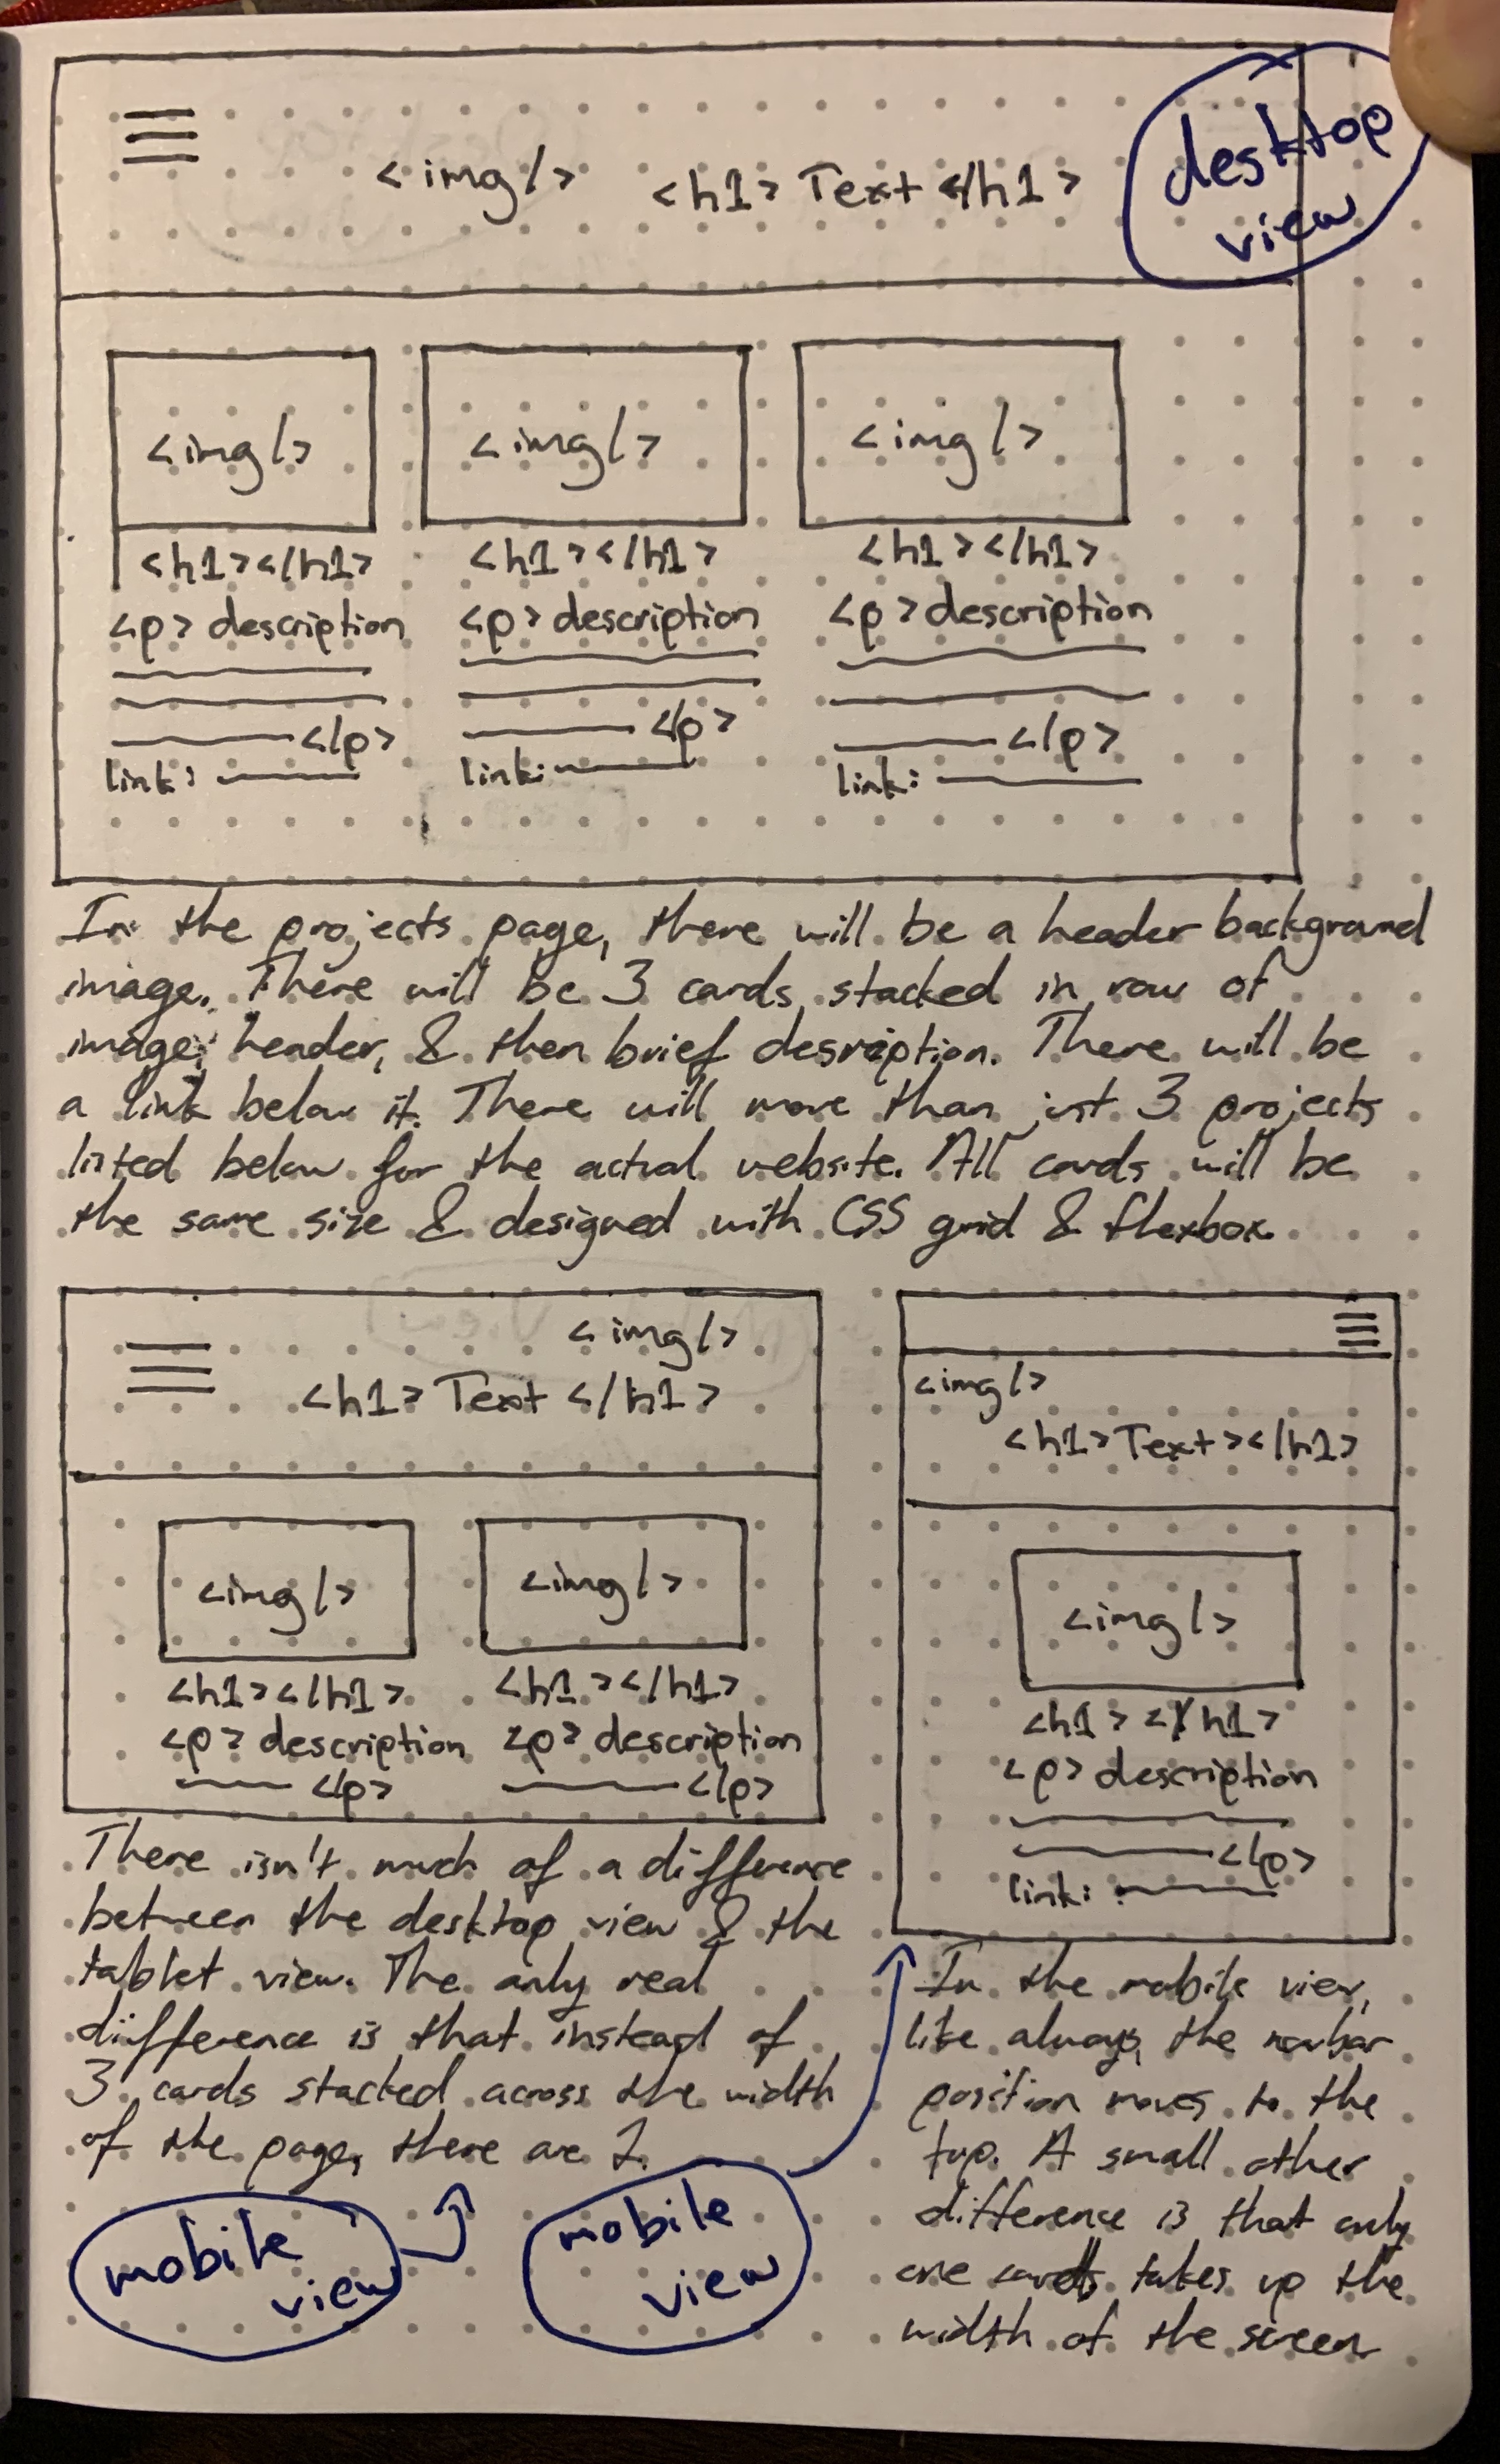 <img/> <h1> Text </h1>
desktop
view
<img/> <img/> <img/>
<h1></h1> <h1></h1> <h1></h1>
<p> description <p> description <p> description
</p> </p> </p>
link: link: link:
In the projects page, there will be a header background
image. There will be 3 cards stacked in row of
image, header, & then brief desription. There will be
a link below it. There will more than just 3 projects
listed below for the actual website. All cards will be
the same size & designed with CSS grid & flexbox.
<img/>
<h1> Text </h1>
<img/> <img/>
<h1></h1> <h1></h1>
<p> description <p> description
</p> </p>
There isn't much of a difference
between the desktop view & the
tablet view. The only real
difference is that instead of
3 cards stacked across the width
of the page, there are 2.
mobile
view
mobile
view
<img/>
<h1> Text ></h1>
<img/>
<h1> </h1>
<p> description
</p>
link:
In the mobile view,
like always, the navbar
position moves to the
top. A small other
difference is that only
one cards takes up the
width of the screen